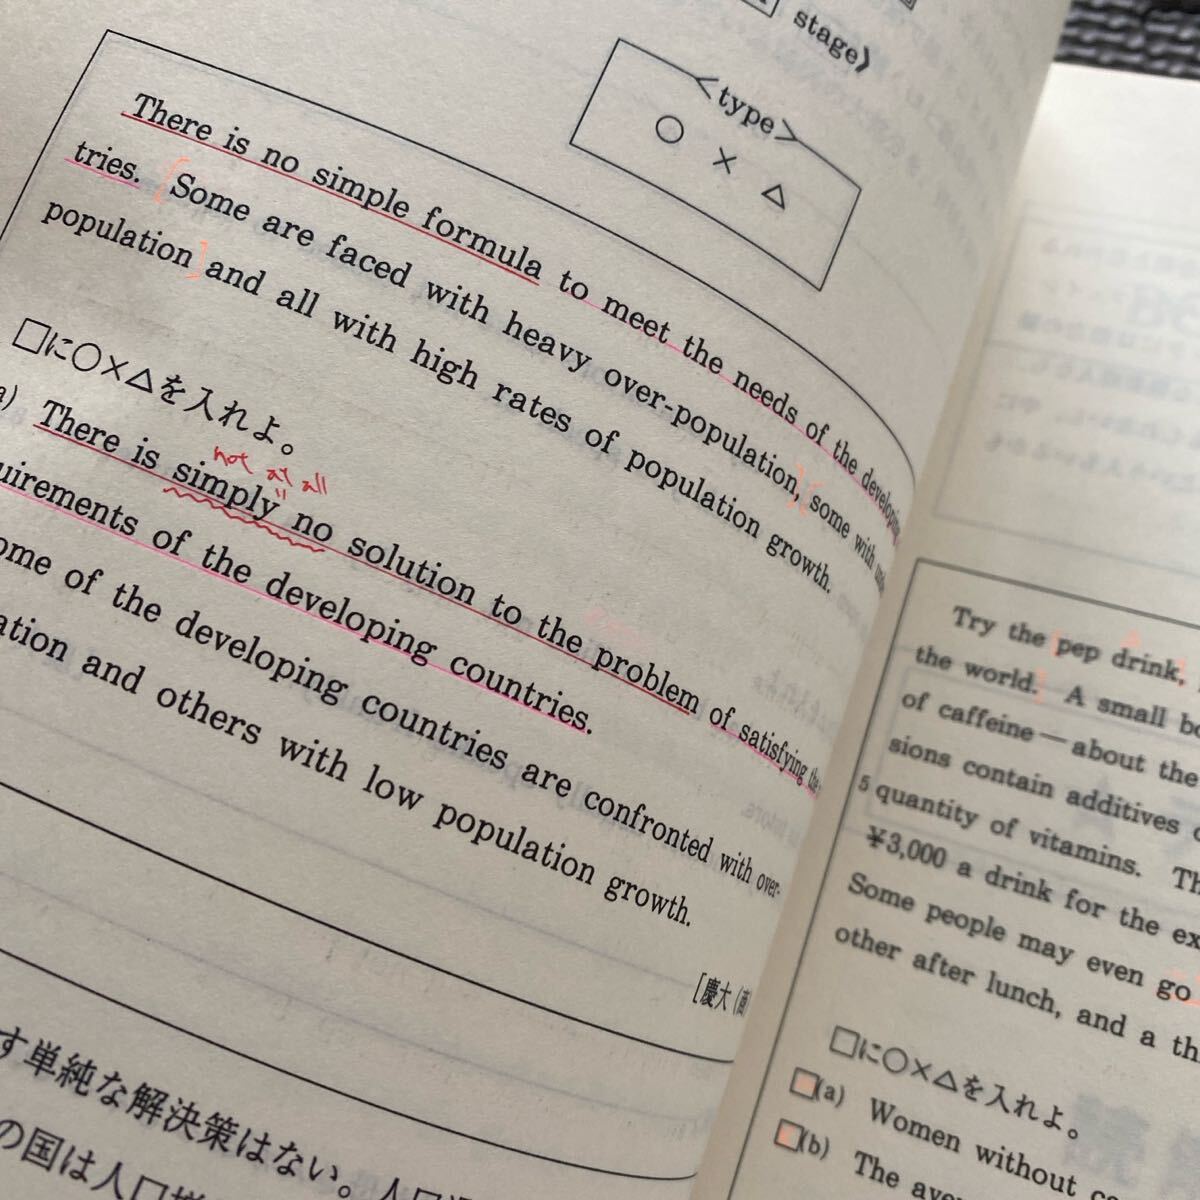 stage》
<type>
○ × △
There is no simple formula to meet the needs of the developing
tries. Some are faced with heavy over-population, some with under
population and all with high rates of population growth.
□に○×△を入れよ。
a) There is simply no solution to the problem of satisfying the
not at all
uirements of the developing countries.
ome of the developing countries are confronted with over-
ation and others with low population growth.
[慶大(商
す単純な解決策はない。人口
の国は人口増
Try the pep drink,
the world. A small bo
of caffeine—about the
sions contain additives
5 quantity of vitamins. Th
¥3,000 a drink for the ex
Some people may even go
other after lunch, and a th
□に○×△を入れよ。
□(a) Women without c
□(b) The ave